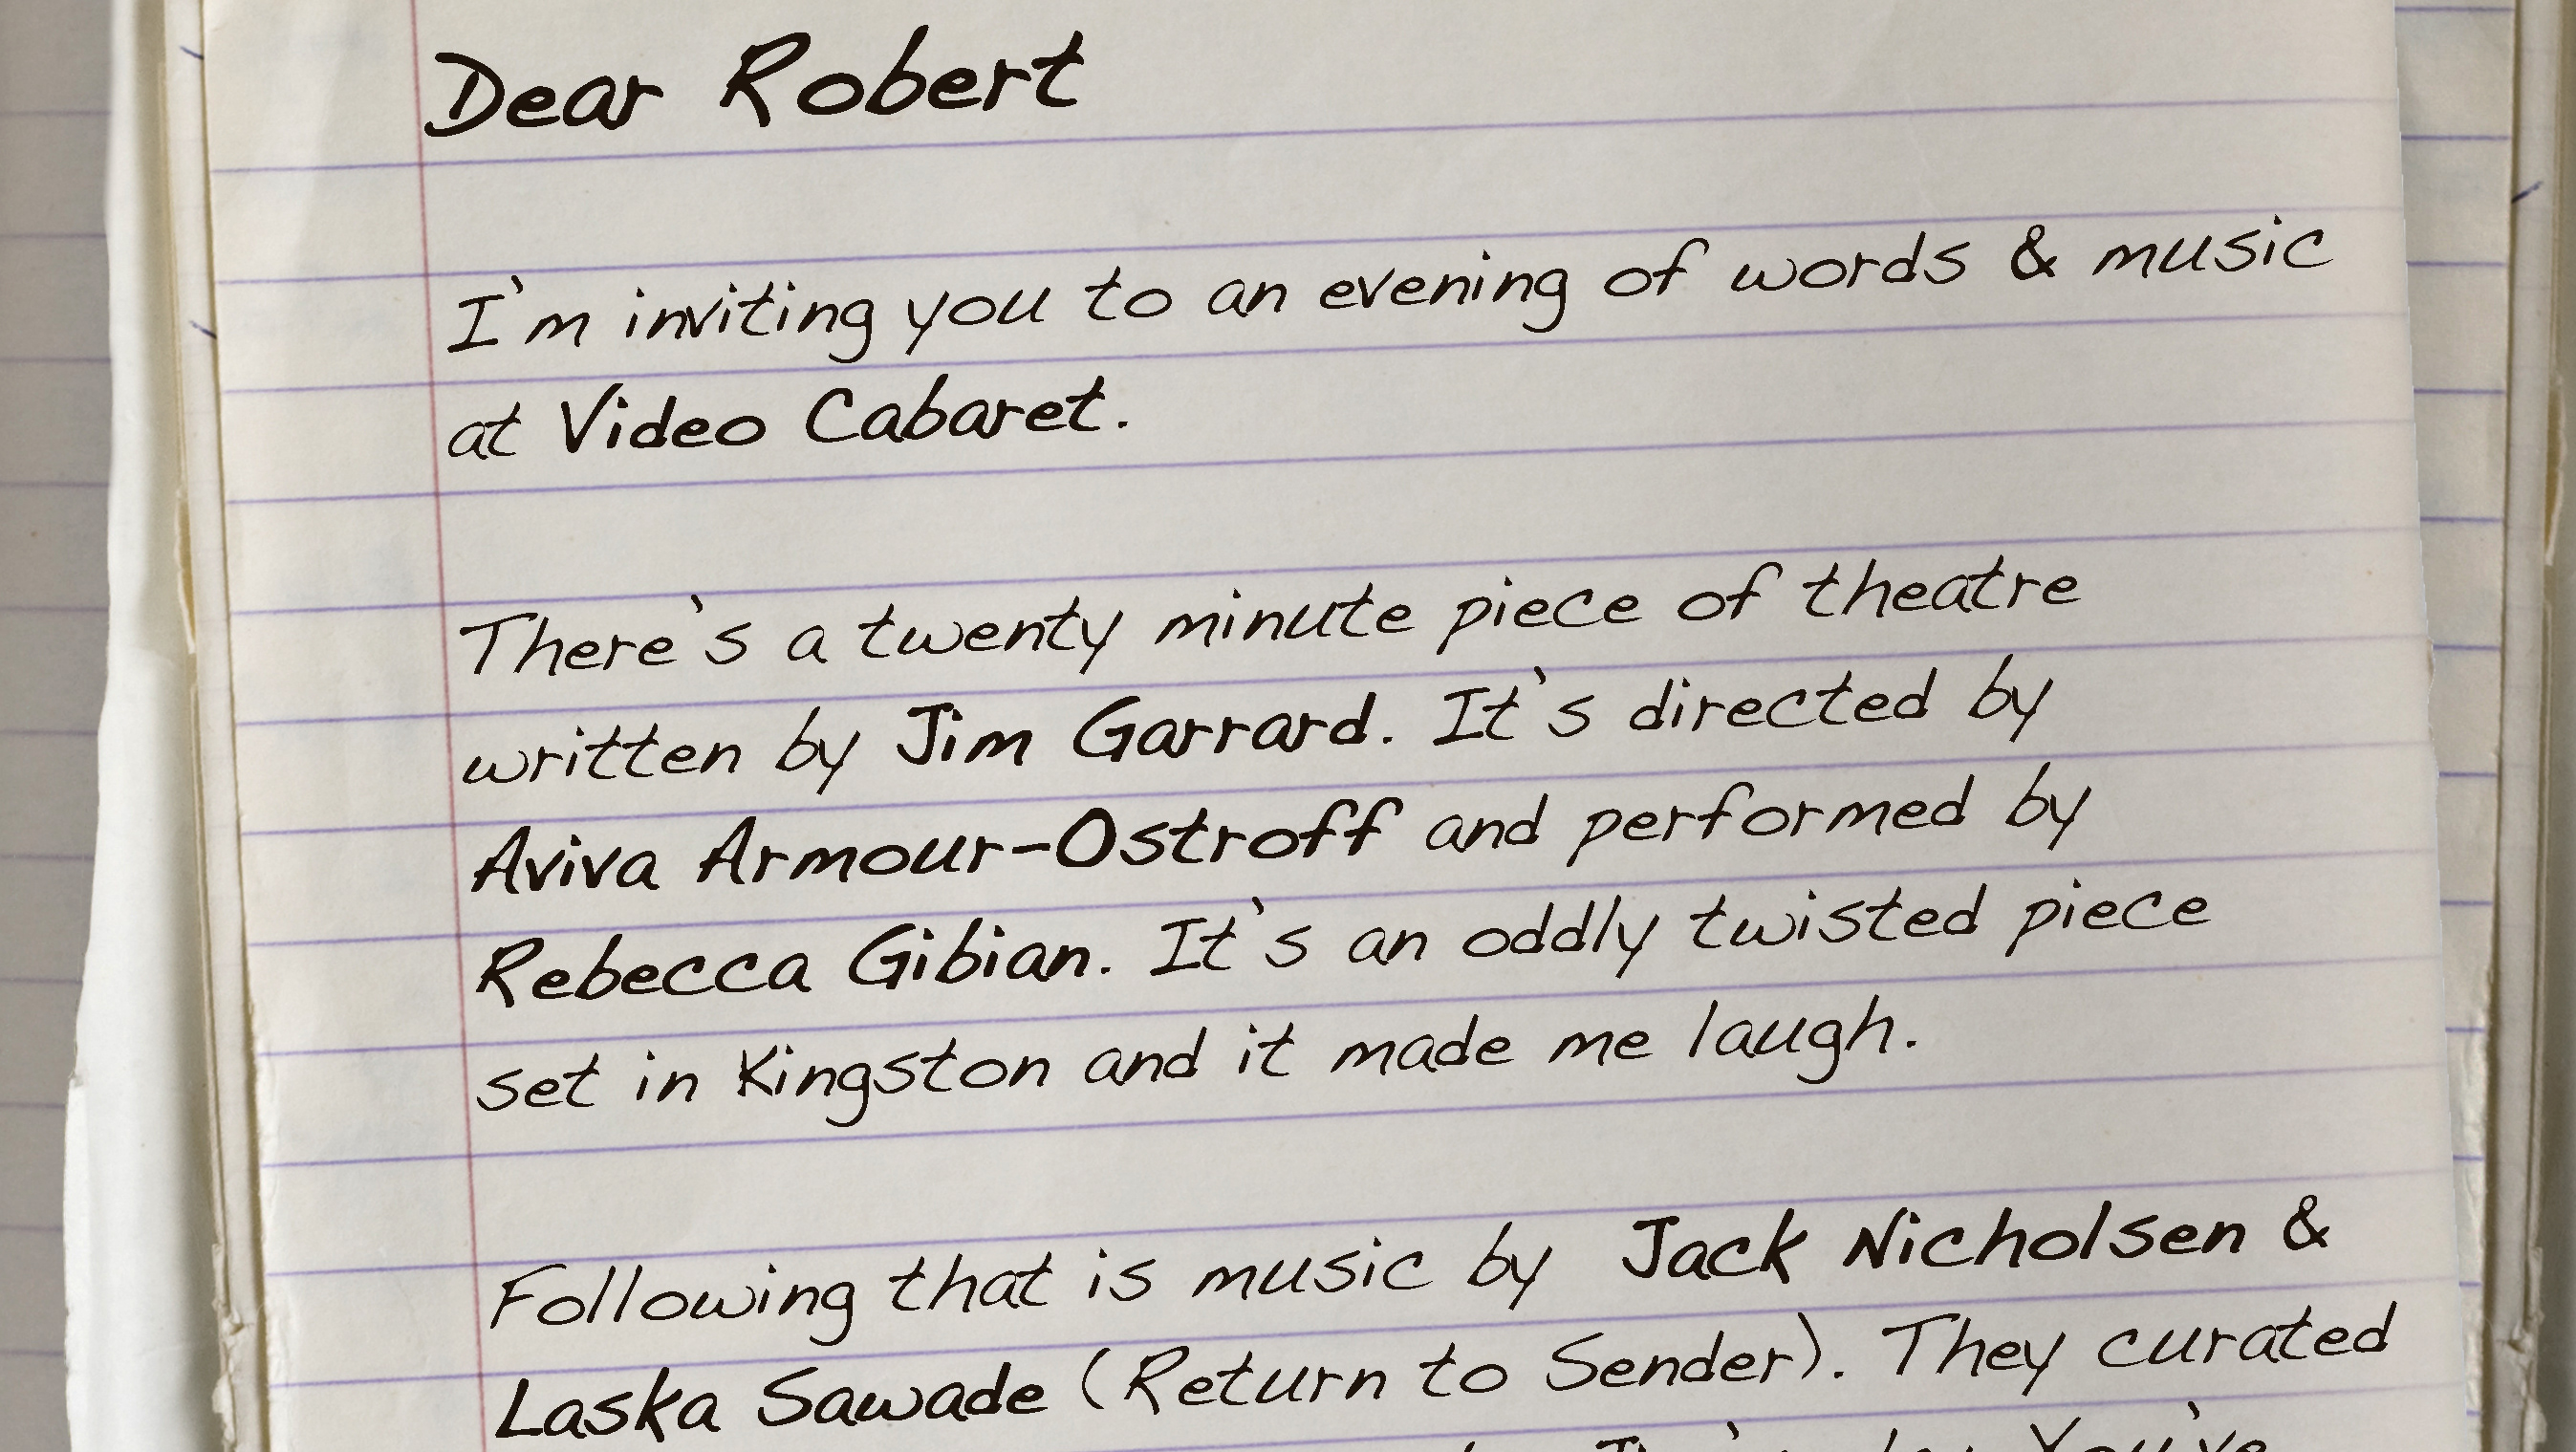 Dear Robert
I'm inviting you to an evening of words & music
at Video Cabaret.
There's a twenty minute piece of theatre
written by Jim Garrard. It's directed by
Aviva Armour-Ostroff and performed by
Rebecca Gibian. It's an oddly twisted piece
set in Kingston and it made me laugh.
Following that is music by Jack Nicholsen &
Laska Sawade (Return to Sender). They curated
You've